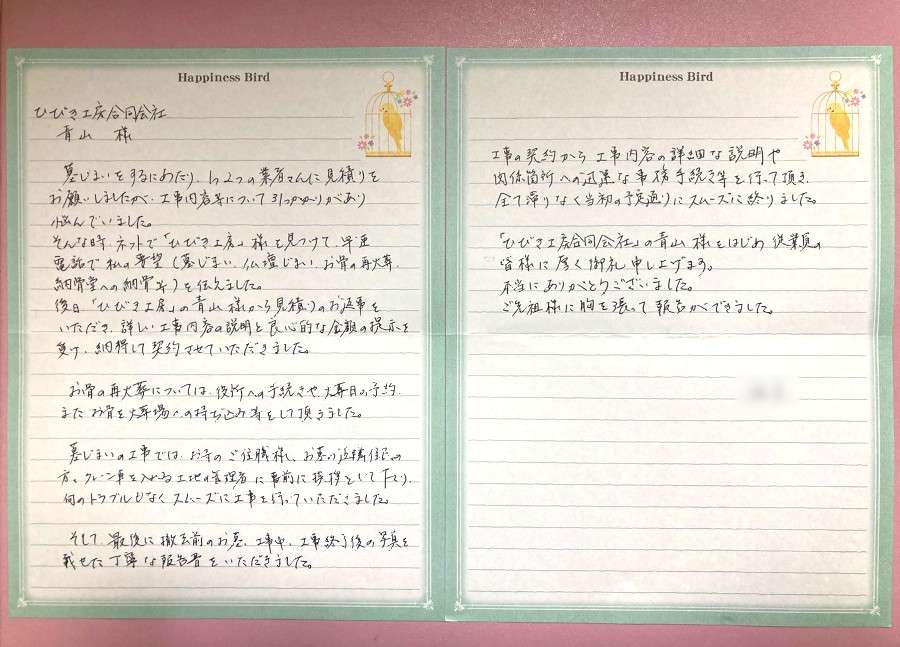 Happiness Bird
ひびき工房合同会社
青山 様
墓じまいをするにあたり、2つの業者さんに見積りを
お願いしましたが、工事内容等について引っかかりがあり
悩んでいました。
そんな時、ネットで「ひびき工房」様を見つけて、早速
電話で私の希望(墓じまい、仏壇じまい、お骨の再火葬、
納骨堂への納骨等)を伝えました。
後日「ひびき工房」の青山様から見積りのお返事を
いただき、詳しい工事内容の説明と良心的な金額の提示を
受け、納得して契約させていただきました。
お骨の再火葬については、役所への手続きや、火葬日の予約、
また お骨を火葬場への持ち込み等をして頂きました。
墓じまいの工事では、お寺のご住職様、お墓の近隣住民の
方、クレーン車を入れる土地の管理者に事前に挨拶をして下さり、
何のトラブルもなくスムーズに工事を行っていただきました。
そして、最後に撤去前のお墓、工事中、工事終了後の写真を
載せた丁寧な報告書をいただきました。
Happiness Bird
工事の契約から工事内容の詳細な説明や
関係箇所への迅速な事務手続き等を行って頂き、
全て滞りなく当初の予定通りにスムーズに終りました。
「ひびき工房合同会社」の青山様をはじめ、従業員の
皆様に厚く御礼申し上げます。
本当にありがとうございました。
ご先祖様に胸を張って報告ができました。